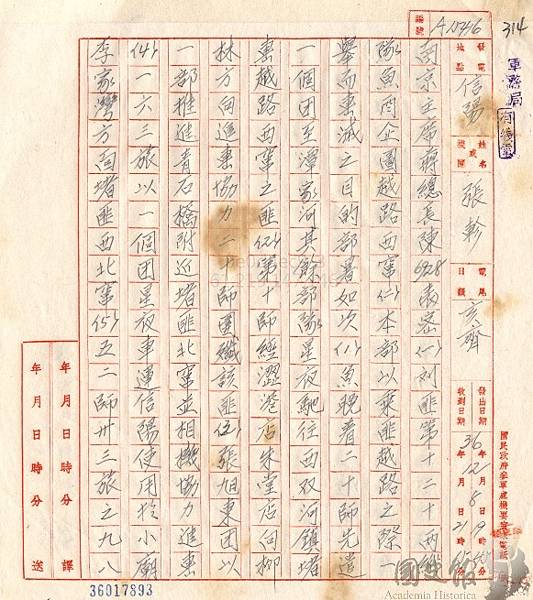 314
編號 A10746
軍務局
發電地點 信陽
姓名或機關 張軫
電尾日韻 亥齊
發出日期 36年12月8日19時
收到日期 年 月 日21時
國民政府參軍處機要室
南京主席蔣總長陳6928表密(一)刘匪第十二十两縱
隊魚酉企圖越路西竄(二)本部以乘匪越路之際一
舉而裹滅之目的部署如次(1)魚晚着二十師先遣
一個团至潭家河其餘部隊星夜馳往西双河鎮堵
裹越路西竄之匪(2)第十師經澀港店朱堂店向柳
林方向進裹協力二十師圍殲該匪(3)張旭東团以
一部推進青石橋附近堵匪北竄並相機協力進裹
(4)一六三旅以一個团星夜車運信陽使用於小廟
李家灣方面堵匪西北竄(5)五二師卅三旅之九八
年 月 日 時 分 譯
年 月 日 時 分 送
36017893
國史館
Academia Historica